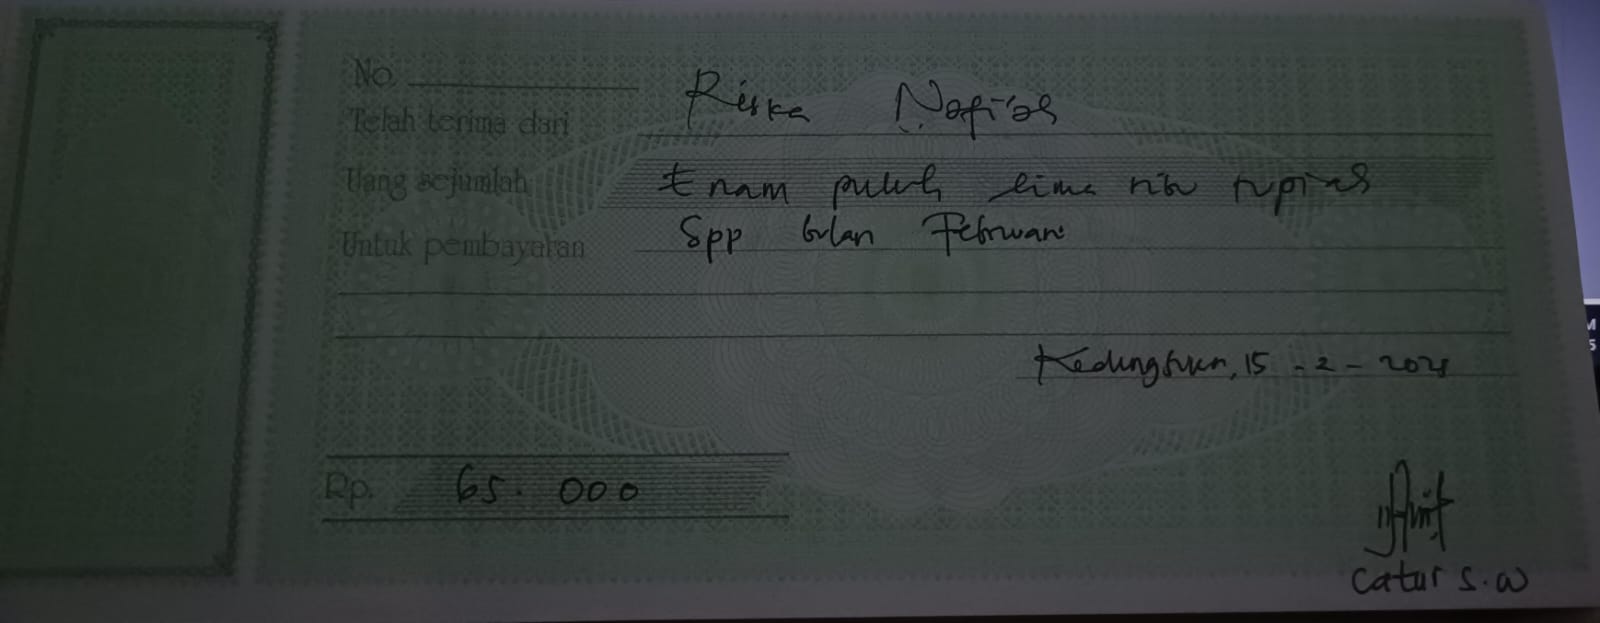 No.
Telah terima dari Riska
Uang sejumlah Enam puluh lima ribu rupiah
Untuk pembayaran Spp bulan Februari
15 - 2 -
Rp. 65.000
Catur S.W